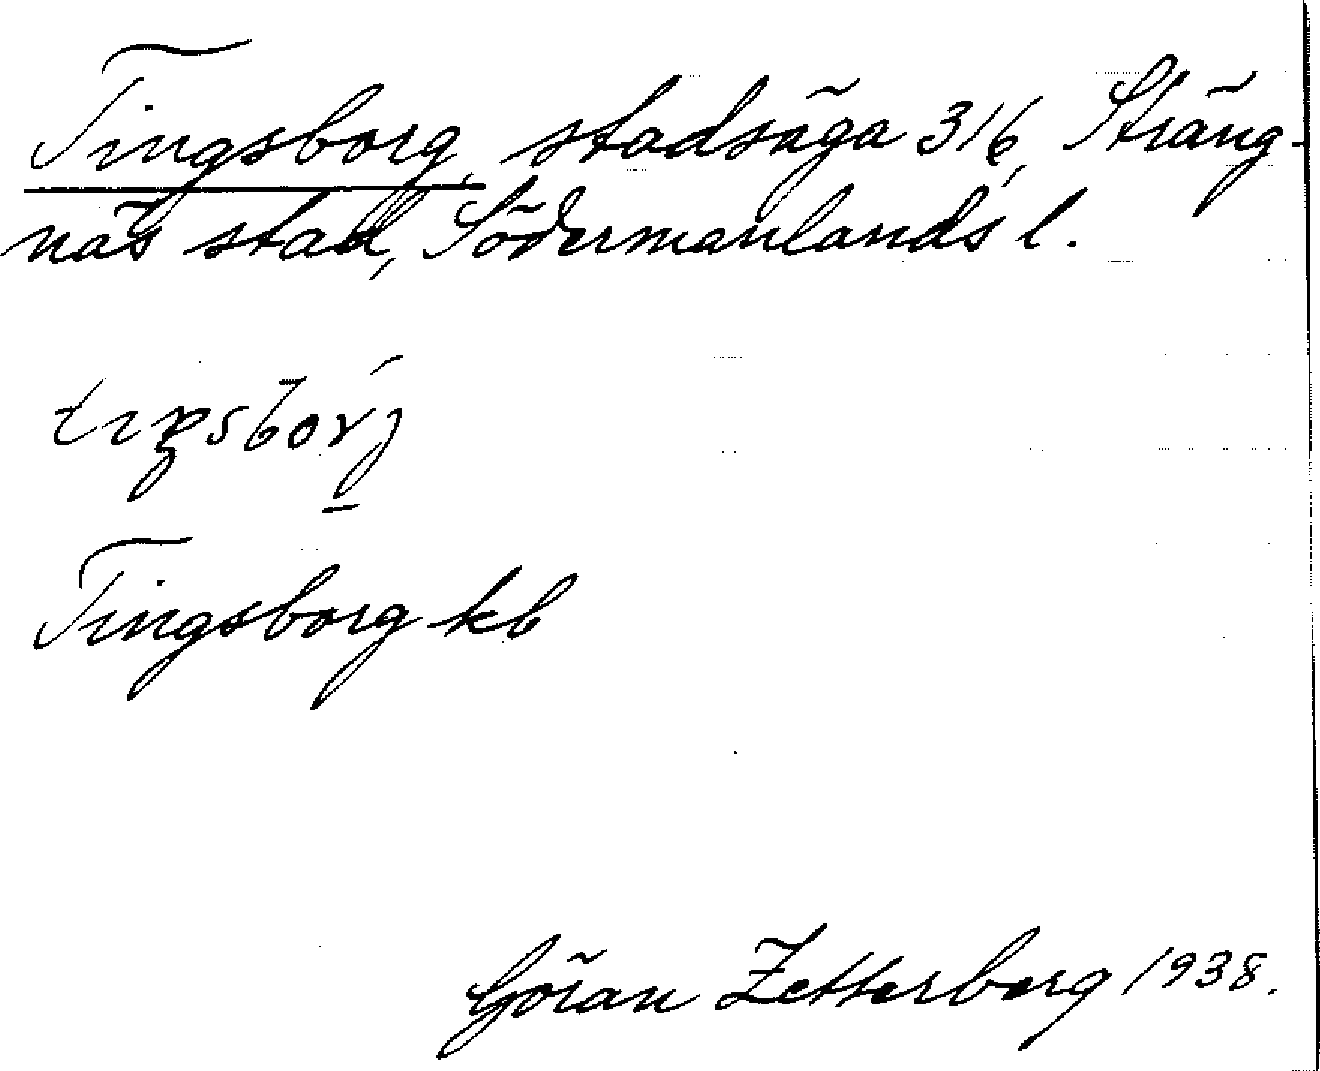 Tingsborg, stadsäga 316, Sträng-
näs stad, Södermanlands l.
Tingsborg kb
Göran Zetterberg 1938.